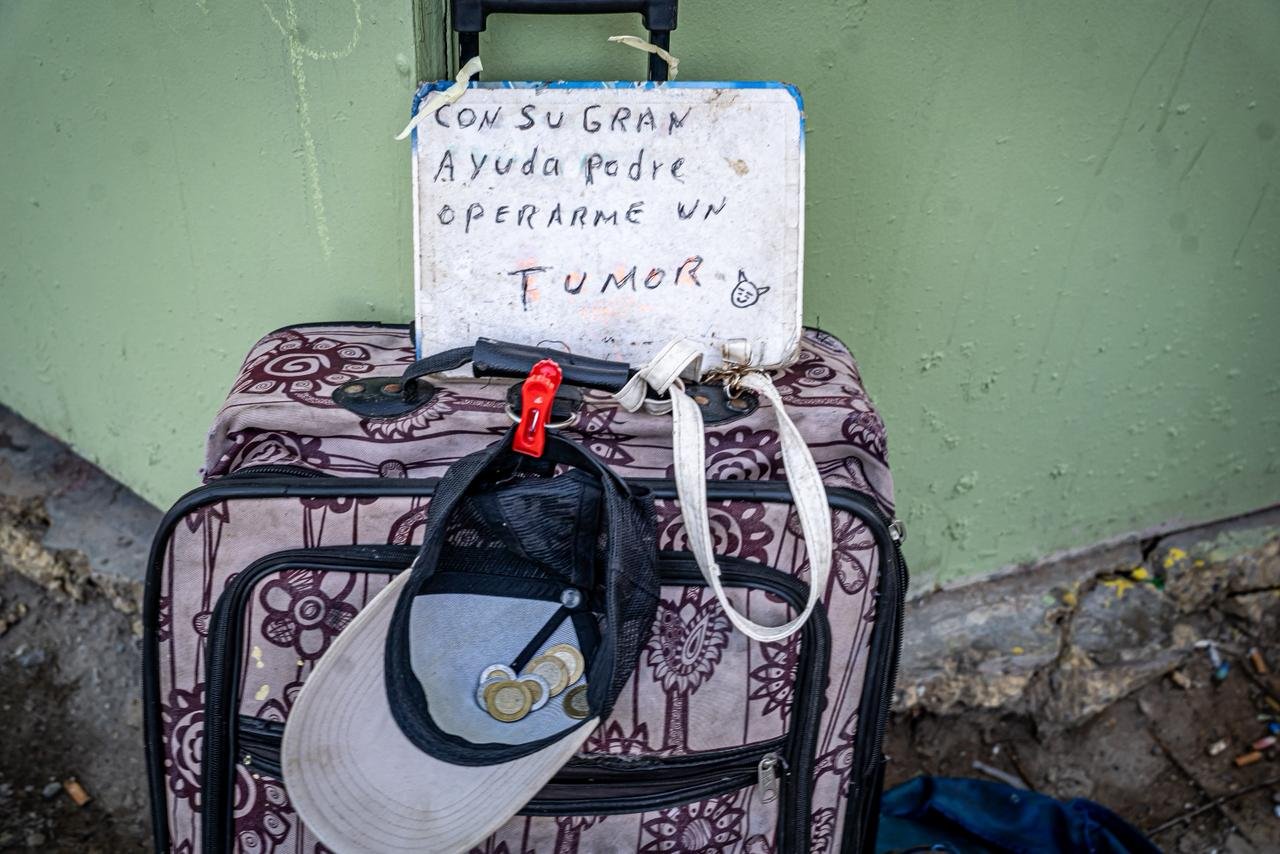 CON SU GRAN
AYuda Podre
OPERARME UN
TUMOR